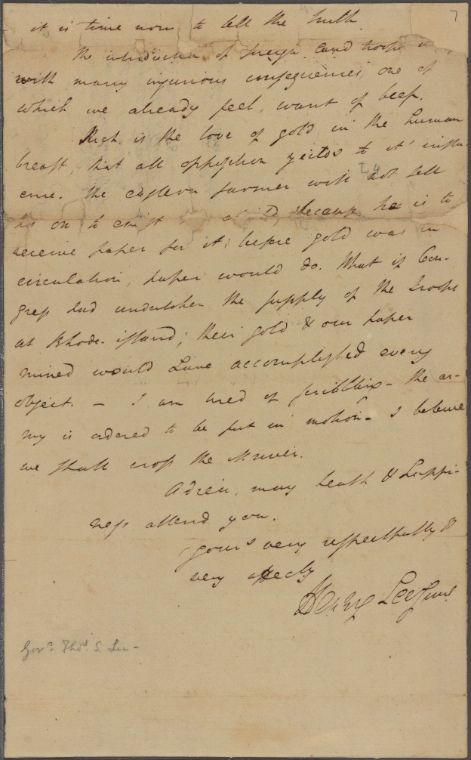 7
it is time now to tell the truth
The introduction of foreign and troops is
with many injurious consequences, one of
which we already feel, want of beef.
Such is the love of gold in the human
breast, that all opposition yeilds to it' influ-
ence. The eastern farmer will not sell
his ox to because he is to
receive paper for it; before gold was in
circulation, paper would do. What if Con-
gress had undertaken the supply of the troops
at Rhode-island; their gold & our paper
mixed would have accomplished every
object. — I am tired of scribbling — the ar-
my is ordered to be put in motion — I believe
we shall cross the river.
Adieu, may health & happi-
ness attend you.
yours very respectfully &
very affecly
Henry Lee Junr
Govr. Thos. S. Lee -